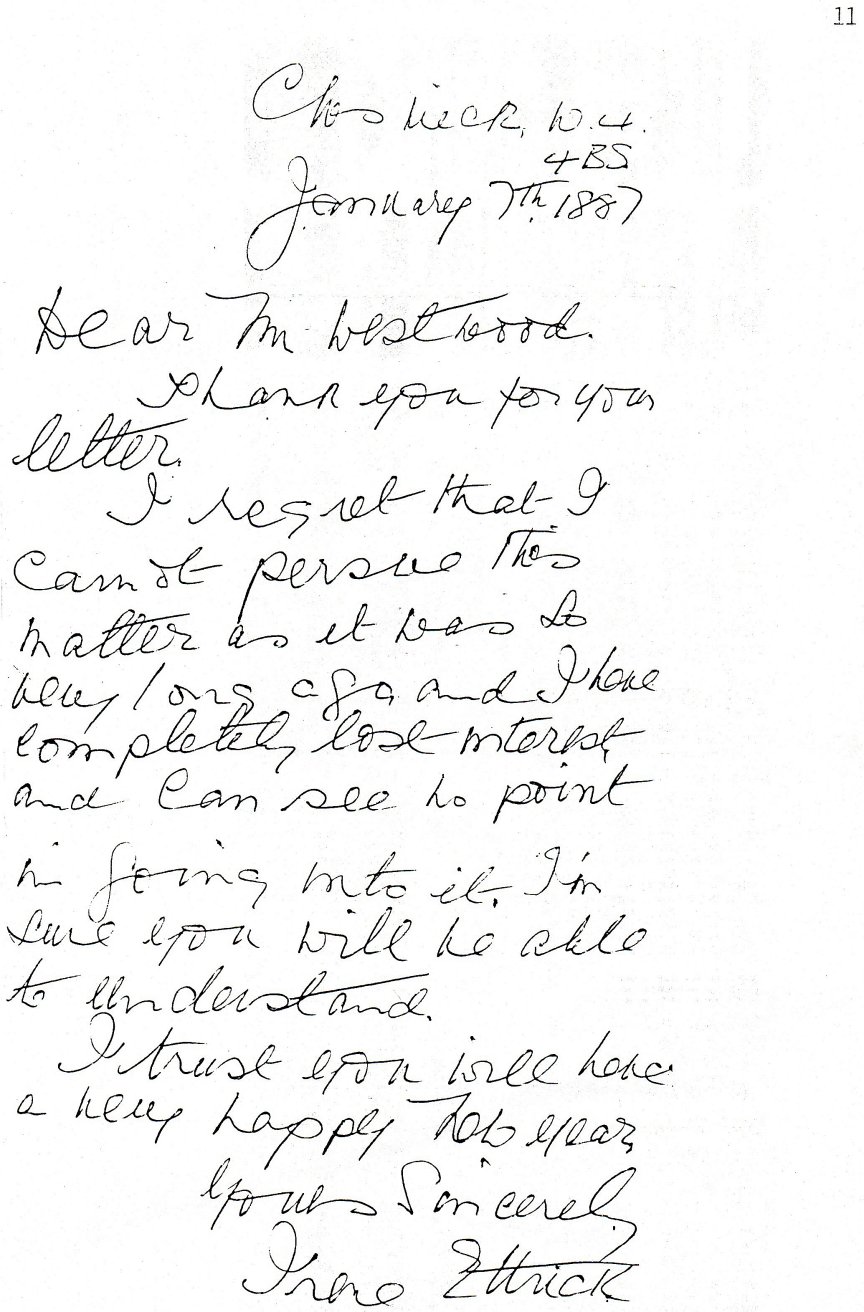 11
Chiswick, W.4.
4BS
January 7th. 1887
Dear Mr Westwood.
Thank you for your
letter.
I regret that I
cannot persue this
matter as it was so
very long ago and I have
completely lost interest
and can see no point
in going into it. I'm
sure you will be able
to understand.
I trust you will have
a very happy New year
Yours Sincerely
Irene Ettrick